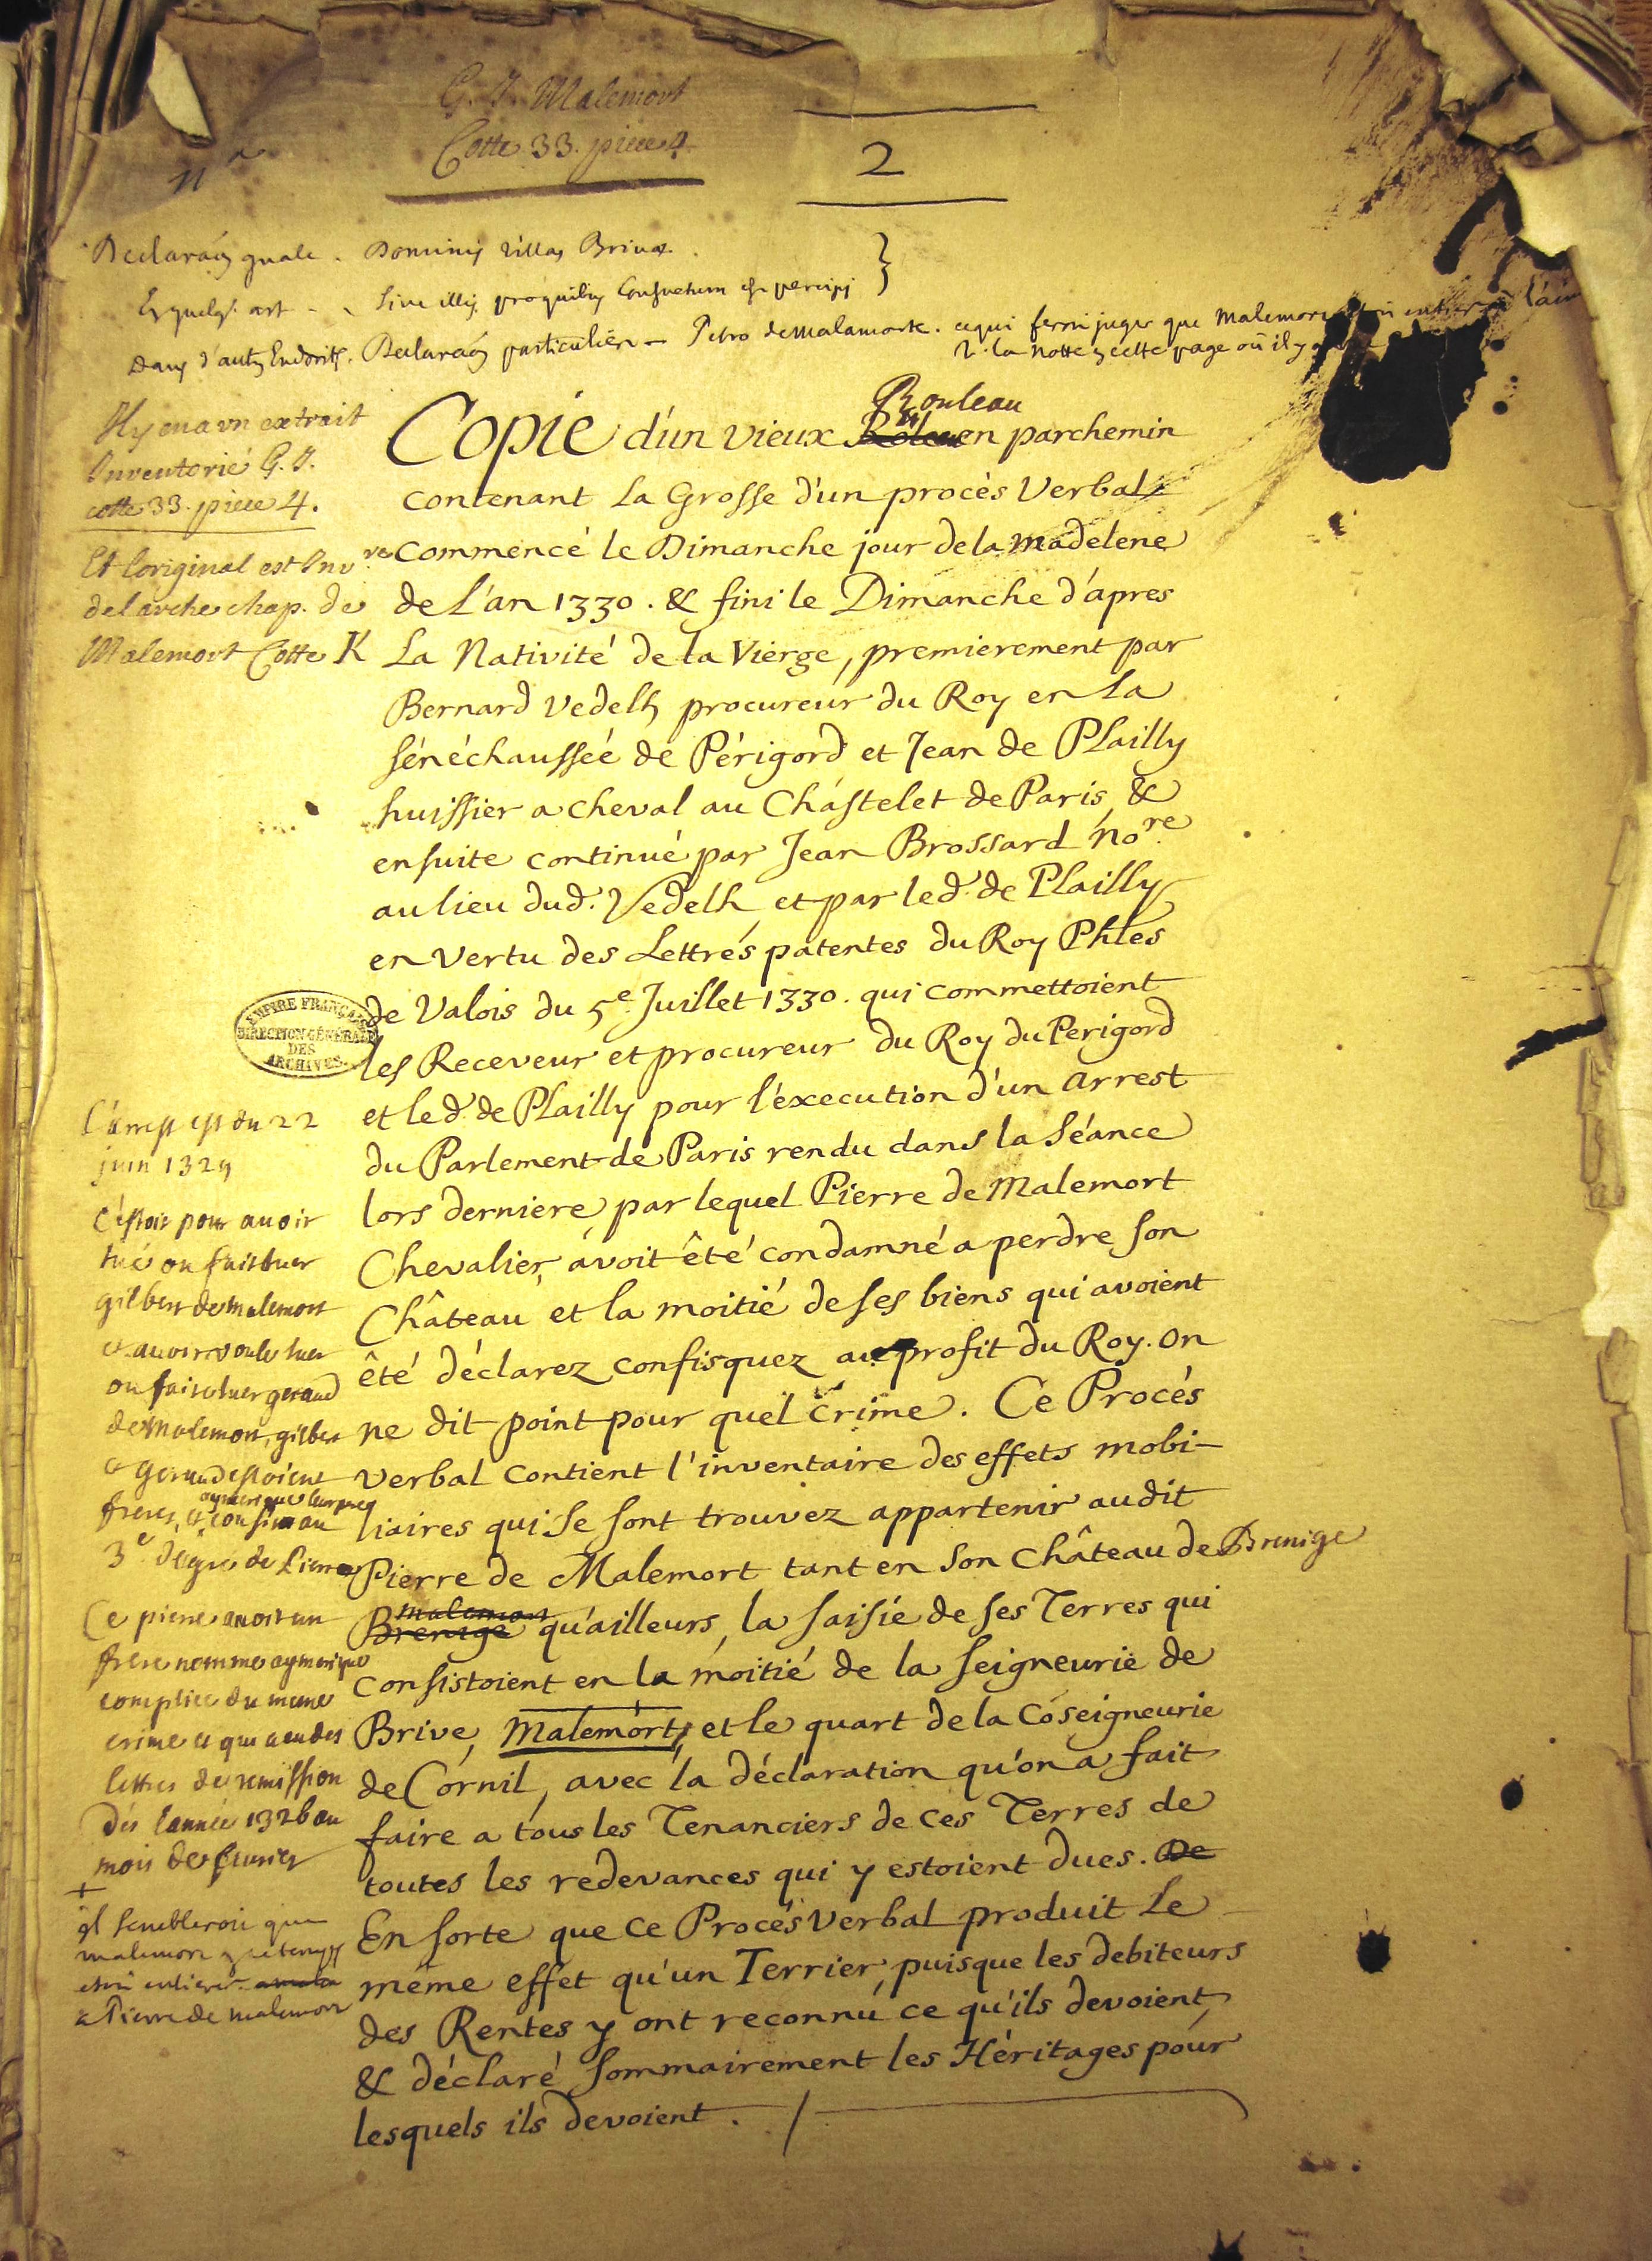 G. J. Malemort
Cotte 33. piece 4.
2
Declaraõn gnale. Dominis villas Brivæ.
sive illis pro quibus consuetum est percipi
Dans d'autres Endroits. Declaraõn particuliere - Petro de Malamorte. ce qui feroit juger que Malemort
V. la Notte cette page où il y a
Il y en a un extrait
Inventorié G. J.
cotte 33. piece 4.
Et l'original est Inv.re
de l'arche chap. de
Malemort Cotte K
Copie d'un vieux Rouleau en parchemin
contenant La Grosse d'un procès Verbal
commencé le Dimanche jour de la Madelene
de L'an 1330. & fini le Dimanche d'apres
La Nativité de la Vierge, premierement par
Bernard Vedelh procureur du Roy en La
sénéchaussée de Périgord et Jean de Plailly
huissier a cheval au Chástelet de Paris, &
ensuite continué par Jean Brossard No.re
au lieu dud. Vedelh et par led. de Plailly
en Vertu des Lettres patentes du Roy Phles
de Valois du 5e. Juillet 1330. qui commettoient
les Receveur et procureur du Roy du Perigord
et led. de Plailly pour l'éxecution d'un arrest
du Parlement de Paris rendu dans la Séance
lors derniere, par lequel Pierre de Malemort
Chevalier, avoit êté condamné a perdre son
Château et la moitié de ses biens qui avoient
êté déclarez confisquez au profit du Roy. on
ne dit point pour quel crime. Ce Procés
Verbal contient l'inventaire des effets mobi-
liaires qui se sont trouvez appartenir audit
Pierre de Malemort tant en son château de Brenige
Brenige malemort qu'ailleurs, la saisie de ses Terres qui
consistoient en la moitié de la seigneurie de
Brive, Malemort, et le quart de la Coseigneurie
de Cornil, avec la déclaration qu'on a fait
faire a tous les Tenanciers de ces Terres de
toutes les redevances qui y estoient dues. De
En sorte que ce Procés Verbal produit Le
méme effet qu'un Terrier, puisque les debiteurs
des Rentes y ont reconnu ce qu'ils devoient,
& déclaré sommairement les Héritages pour
lesquels ils devoient.
EMPIRE FRANÇAIS
DIRECTION GÉNÉRALE
DES
ARCHIVES
L'arrest est du 22
juin 1329
c'estoit pour avoir
tué ou fait tuer
gilbert de malemort
et avoir voulu tuer
ou faire tuer geraud
de Malemort, gilbert
et Geraud estoient
freres, et aymerique leur pere cousin au
3e. degré de Pierre
Ce pierre avoit un
frere nommé aymerique
complice du meme
crime et qui a eu des
lettres de remission
dés l'année 1326 au
mois de fevrier
+
il sembleroit que
malemort
entier
a Pierre de malemort